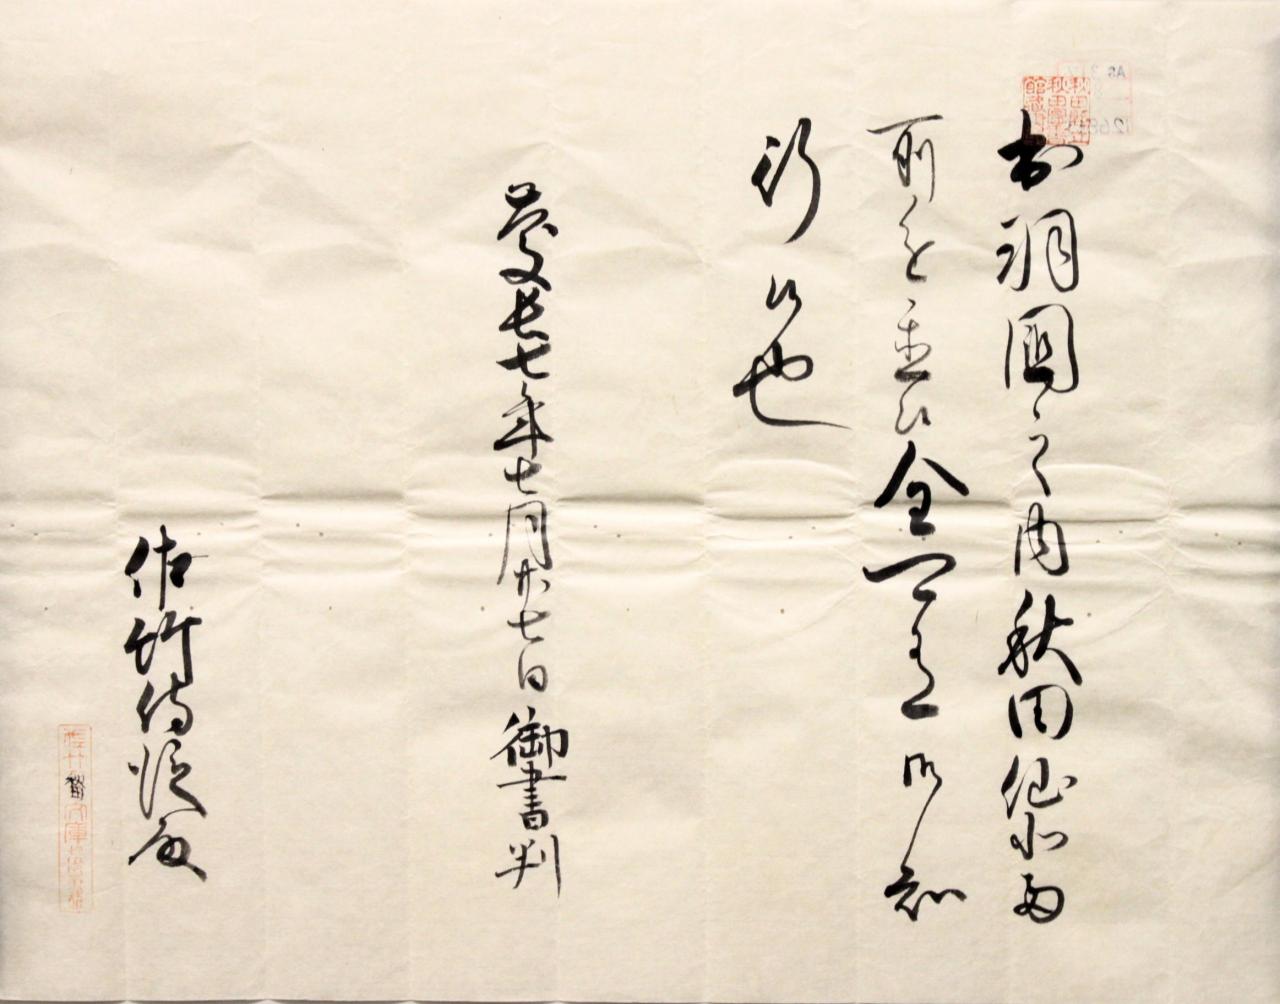 出羽國之内秋田仙北両
所進置候全可有御知
行候也
慶長七年七月廿七日御書判
佐竹侍従殿